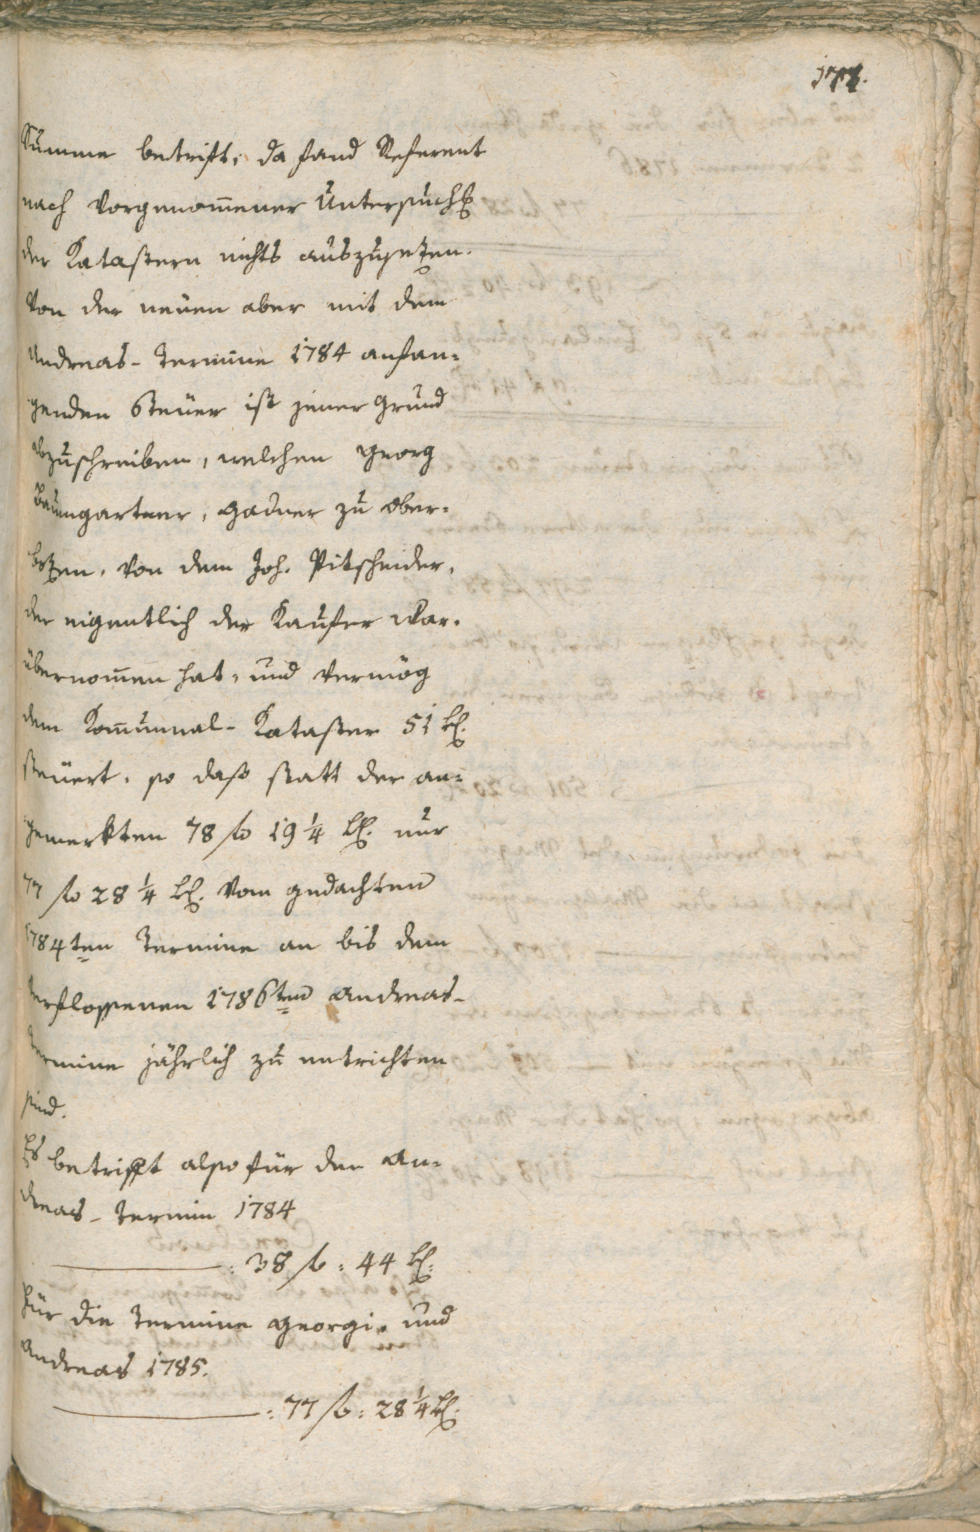 171.
Summe betrift, da fand Referent
nach vorgenom̅ener Untersuchg
der Katastern nichts auszusetzen.
Von der neuen aber mit dem
Andreas-Termine 1784 anfan-
genden Steuer ist jener Grund
abzuschreiben, welchen Georg
Baumgartner, Gadner zu Ober-
botzen, von dem Joh. Pitscheider,
der eigentlich der Kaufer war,
übernom̅en hat, und vermög
dem Kom̅unal-Kataster 51 kr.
steuert, so daß statt der an-
gemerkten 78 fl 19 1/4 kr. nur
77 fl 28 1/4 kr. vom gedachten
1784ten Termine an bis dem
verflossenen 1786ten Andreas-
Termine jährlich zu entrichten
sind.
Es betrifft also für den An-
dreas-Termin 1784
: 38 fl : 44 kr.
Für die Termine Georgi, und
Andreas 1785.
: 77 fl : 28 1/4 kr.